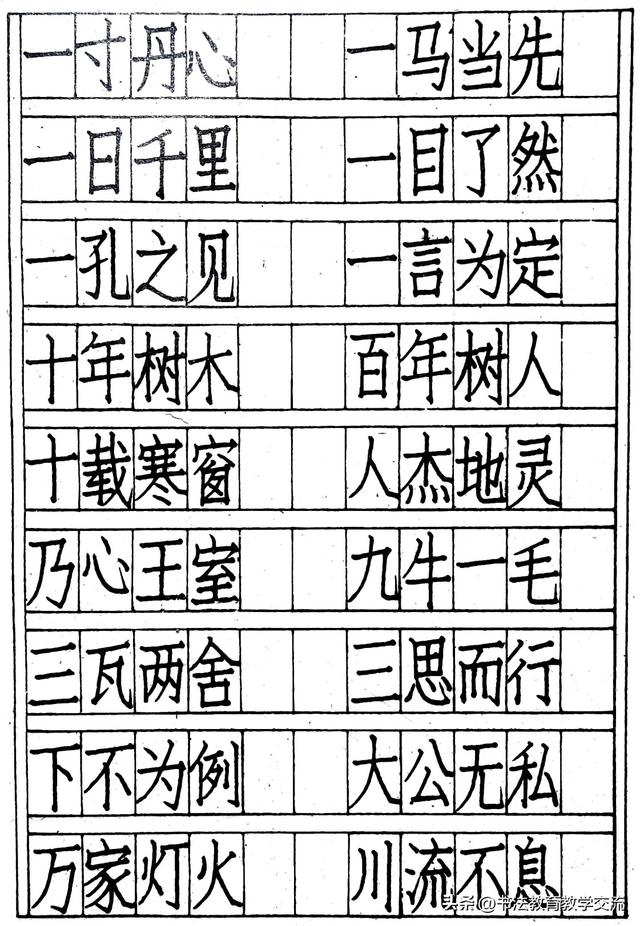 一寸丹心 一马当先
一日千里 一目了然
一孔之见 一言为定
十年树木 百年树人
十载寒窗 人杰地灵
乃心王室 九牛一毛
三瓦两舍 三思而行
下不为例 大公无私
万家灯火 川流不息
头条 @书法教育教学交流